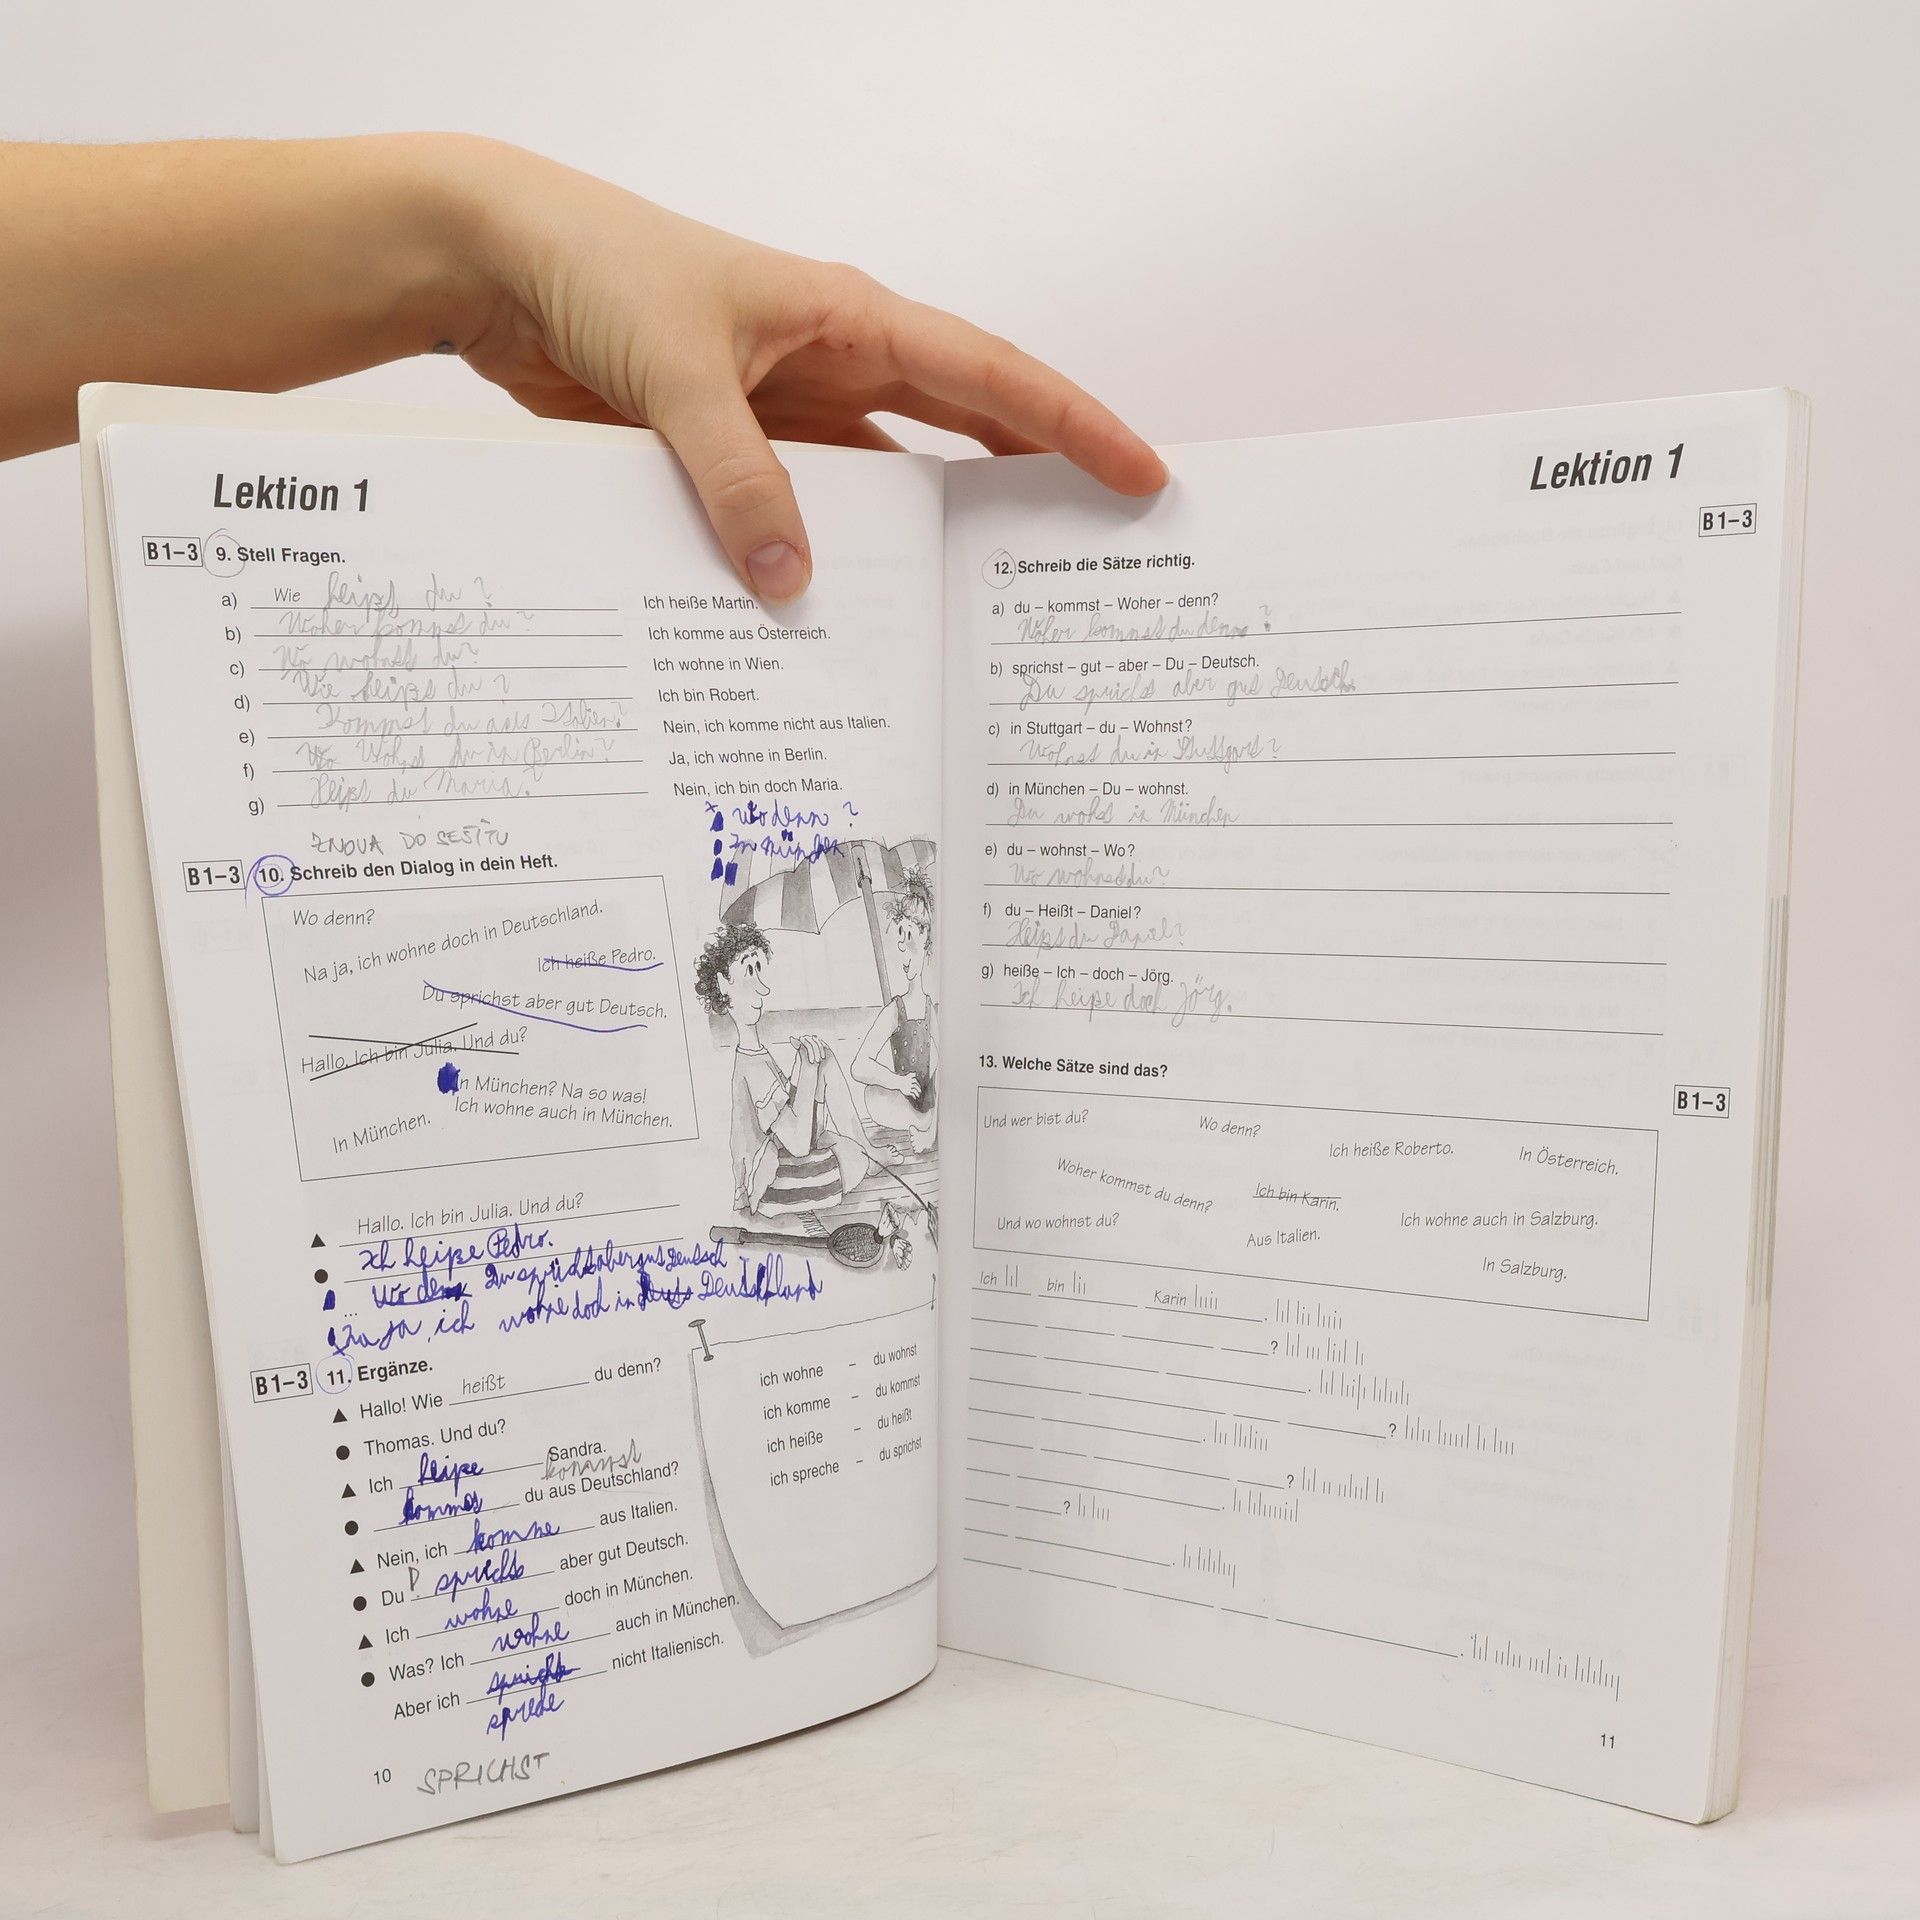 Lektion 1
B1–3 9. Stell Fragen.
a) Wie heißt du? Ich heiße Martin.
b) Woher kommst du? Ich komme aus Österreich.
c) Wo wohnst du? Ich wohne in Wien.
d) Wie heißt du? Ich bin Robert.
e) Kommst du aus Italien? Nein, ich komme nicht aus Italien.
f) Wohnst du in Berlin? Ja, ich wohne in Berlin.
g) Heißt du Maria? Nein, ich bin doch Maria.
Wo denn?
In München
ZNOVA DO SEŠITU
B1–3 10. Schreib den Dialog in dein Heft.
Wo denn?
Na ja, ich wohne doch in Deutschland.
Ich heiße Pedro.
Du sprichst aber gut Deutsch.
Hallo. Ich bin Julia. Und du?
In München? Na so was!
Ich wohne auch in München.
In München.
▲ Hallo. Ich bin Julia. Und du?
● Ich heiße Pedro.
... Wo denn Du sprichst aber gut Deutsch
Na ja, ich wohne doch in Deutschland
B1–3 11. Ergänze.
▲ Hallo! Wie heißt du denn?
● Thomas. Und du?
▲ Ich heiße Sandra.
kommst
● du aus Deutschland?
▲ Nein, ich komme aus Italien.
● Du aber gut Deutsch.
▲ Ich wohne doch in München.
● Was? Ich wohne auch in München.
Aber ich nicht Italienisch.
ich wohne – du wohnst
ich komme – du kommst
ich heiße – du heißt
ich spreche – du sprichst
10 SPRICHST
Lektion 1
B1–3
12. Schreib die Sätze richtig.
a) du – kommst – Woher – denn?
Woher kommst du denn?
b) sprichst – gut – aber – Du – Deutsch.
Du sprichst aber gut Deutsch.
c) in Stuttgart – du – Wohnst?
Wohnst du in Stuttgart?
d) in München – Du – wohnst.
Du wohst in München
e) du – wohnst – Wo?
Wo wohnst du?
f) du – Heißt – Daniel?
Heißt du Daniel?
g) heiße – Ich – doch – Jörg.
Ich heiße doch Jörg.
13. Welche Sätze sind das?
B1–3
Und wer bist du?
Wo denn?
Ich heiße Roberto.
In Österreich.
Woher kommst du denn?
Ich bin Karin.
Und wo wohnst du?
Aus Italien.
Ich wohne auch in Salzburg.
In Salzburg.
Ich bin Karin .
?
.
?
.
?
.
?
.
.
11